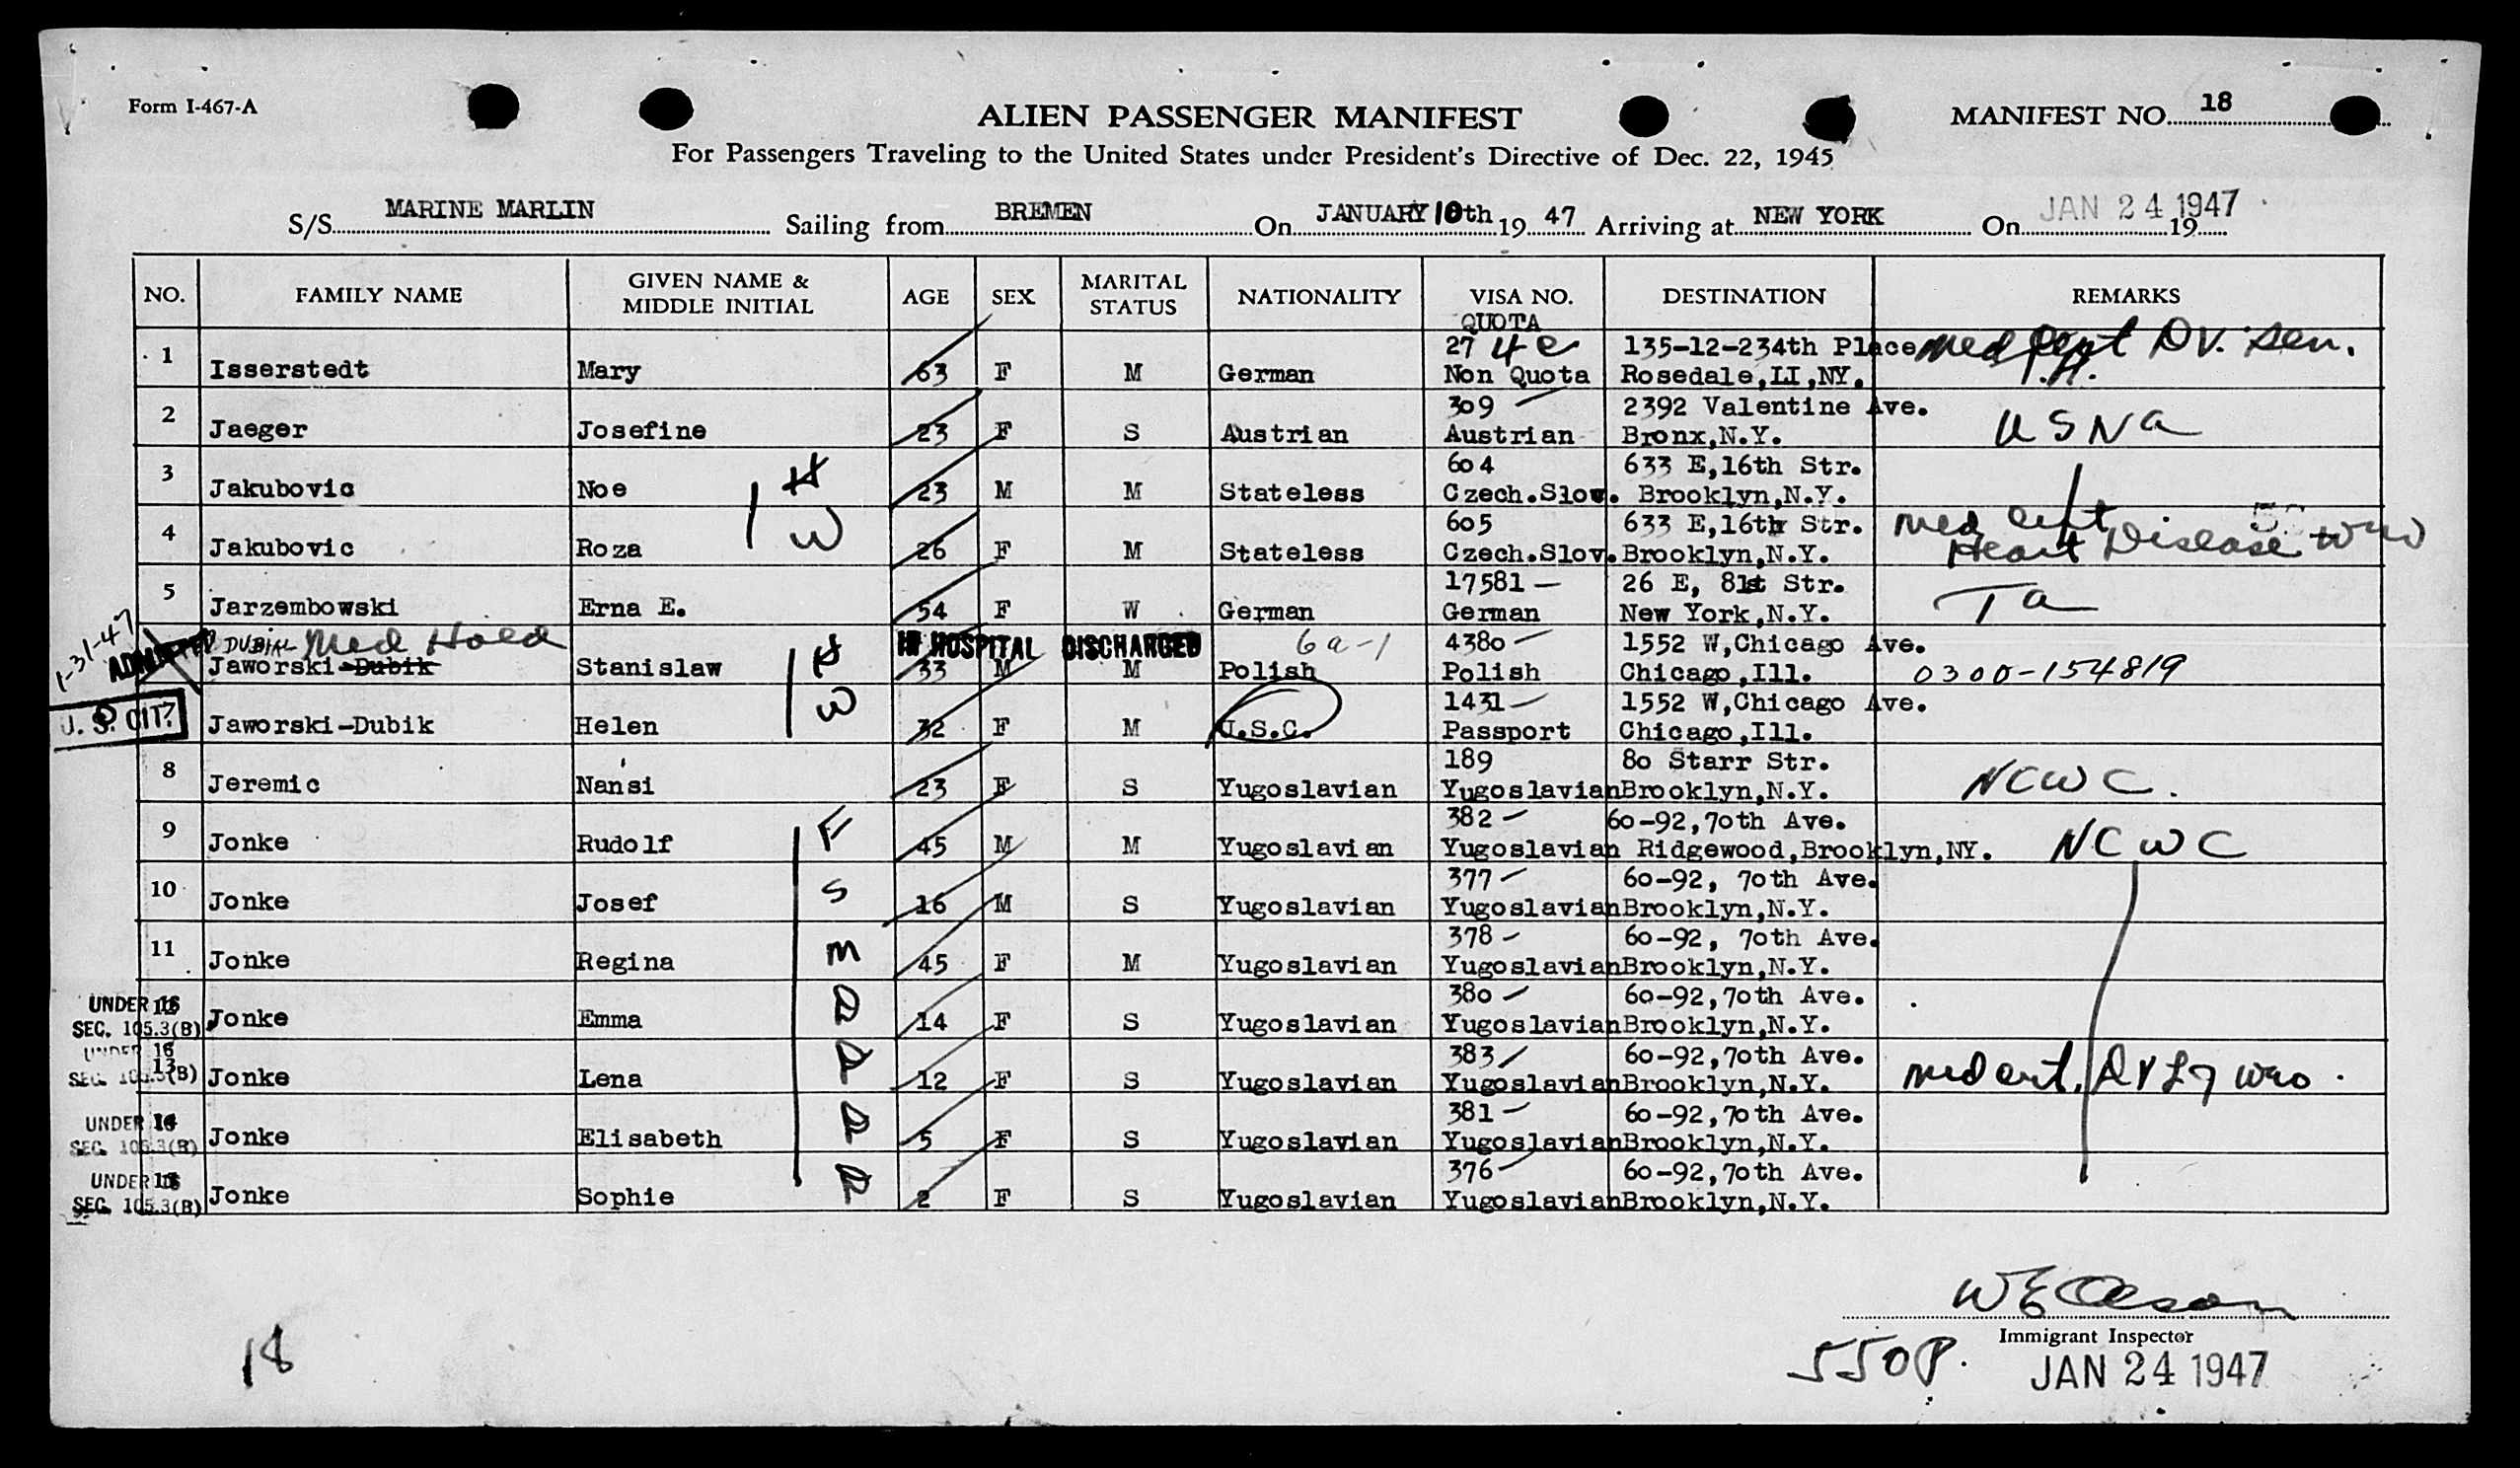 Form I-467-A
ALIEN PASSENGER MANIFEST
MANIFEST NO. 18
For Passengers Traveling to the United States under President's Directive of Dec. 22, 1945
S/S MARINE MARLIN Sailing from BREMEN On JANUARY 10th 19 47 Arriving at NEW YORK On JAN 24 1947 19
NO. FAMILY NAME GIVEN NAME & MIDDLE INITIAL AGE SEX MARITAL STATUS NATIONALITY VISA NO. DESTINATION REMARKS
QUOTA
27 4 e 135-12-234th Place Med Cert DV. Sen.
1 Isserstedt Mary 63 F M German Non Quota Rosedale,LI,NY.
309 2392 Valentine Ave.
2 Jaeger Josefine 23 F S Austrian Austrian Bronx,N.Y. USNA
604 633 E,16th Str.
3 Jakubovic Noe H 23 M M Stateless Czech.Slov. Brooklyn,N.Y.
605 633 E,16th Str. Med Cert
4 Jakubovic Roza W 26 F M Stateless Czech.Slov. Brooklyn,N.Y. Heart Disease
17581 26 E, 81st Str.
5 Jarzembowski Erna E. 54 F W German German New York,N.Y. Ta
1-31-47 ADMITTED DUBIK Med Hold IN HOSPITAL DISCHARGED 6a-1 4380 1552 W,Chicago Ave.
Jaworski-Dubik Stanislaw H 33 M M Polish Polish Chicago,Ill. 0300-154819
1431 1552 W,Chicago Ave.
U. S. CIT. Jaworski-Dubik Helen W 32 F M U.S.C. Passport Chicago,Ill.
189 80 Starr Str.
8 Jeremic Nansi 23 F S Yugoslavian Yugoslavian Brooklyn,N.Y. NCWC.
382 60-92,70th Ave.
9 Jonke Rudolf F 45 M M Yugoslavian Yugoslavian Ridgewood,Brooklyn,NY. NCWC
377 60-92, 70th Ave.
10 Jonke Josef S 16 M S Yugoslavian Yugoslavian Brooklyn,N.Y.
378 60-92, 70th Ave.
11 Jonke Regina M 45 F M Yugoslavian Yugoslavian Brooklyn,N.Y.
UNDER 16 12 380 60-92,70th Ave.
SEC. 105.3(B) Jonke Emma D 14 F S Yugoslavian Yugoslavian Brooklyn,N.Y.
UNDER 16 13 383 60-92,70th Ave.
SEC. 105.3(B) Jonke Lena D 12 F S Yugoslavian Yugoslavian Brooklyn,N.Y. med cert.
UNDER 16 14 381 60-92,70th Ave.
SEC. 105.3(B) Jonke Elisabeth D 5 F S Yugoslavian Yugoslavian Brooklyn,N.Y.
UNDER 16 15 376 60-92,70th Ave.
SEC. 105.3(B) Jonke Sophie D 2 F S Yugoslavian Yugoslavian Brooklyn,N.Y.
Immigrant Inspector
18 550P. JAN 24 1947